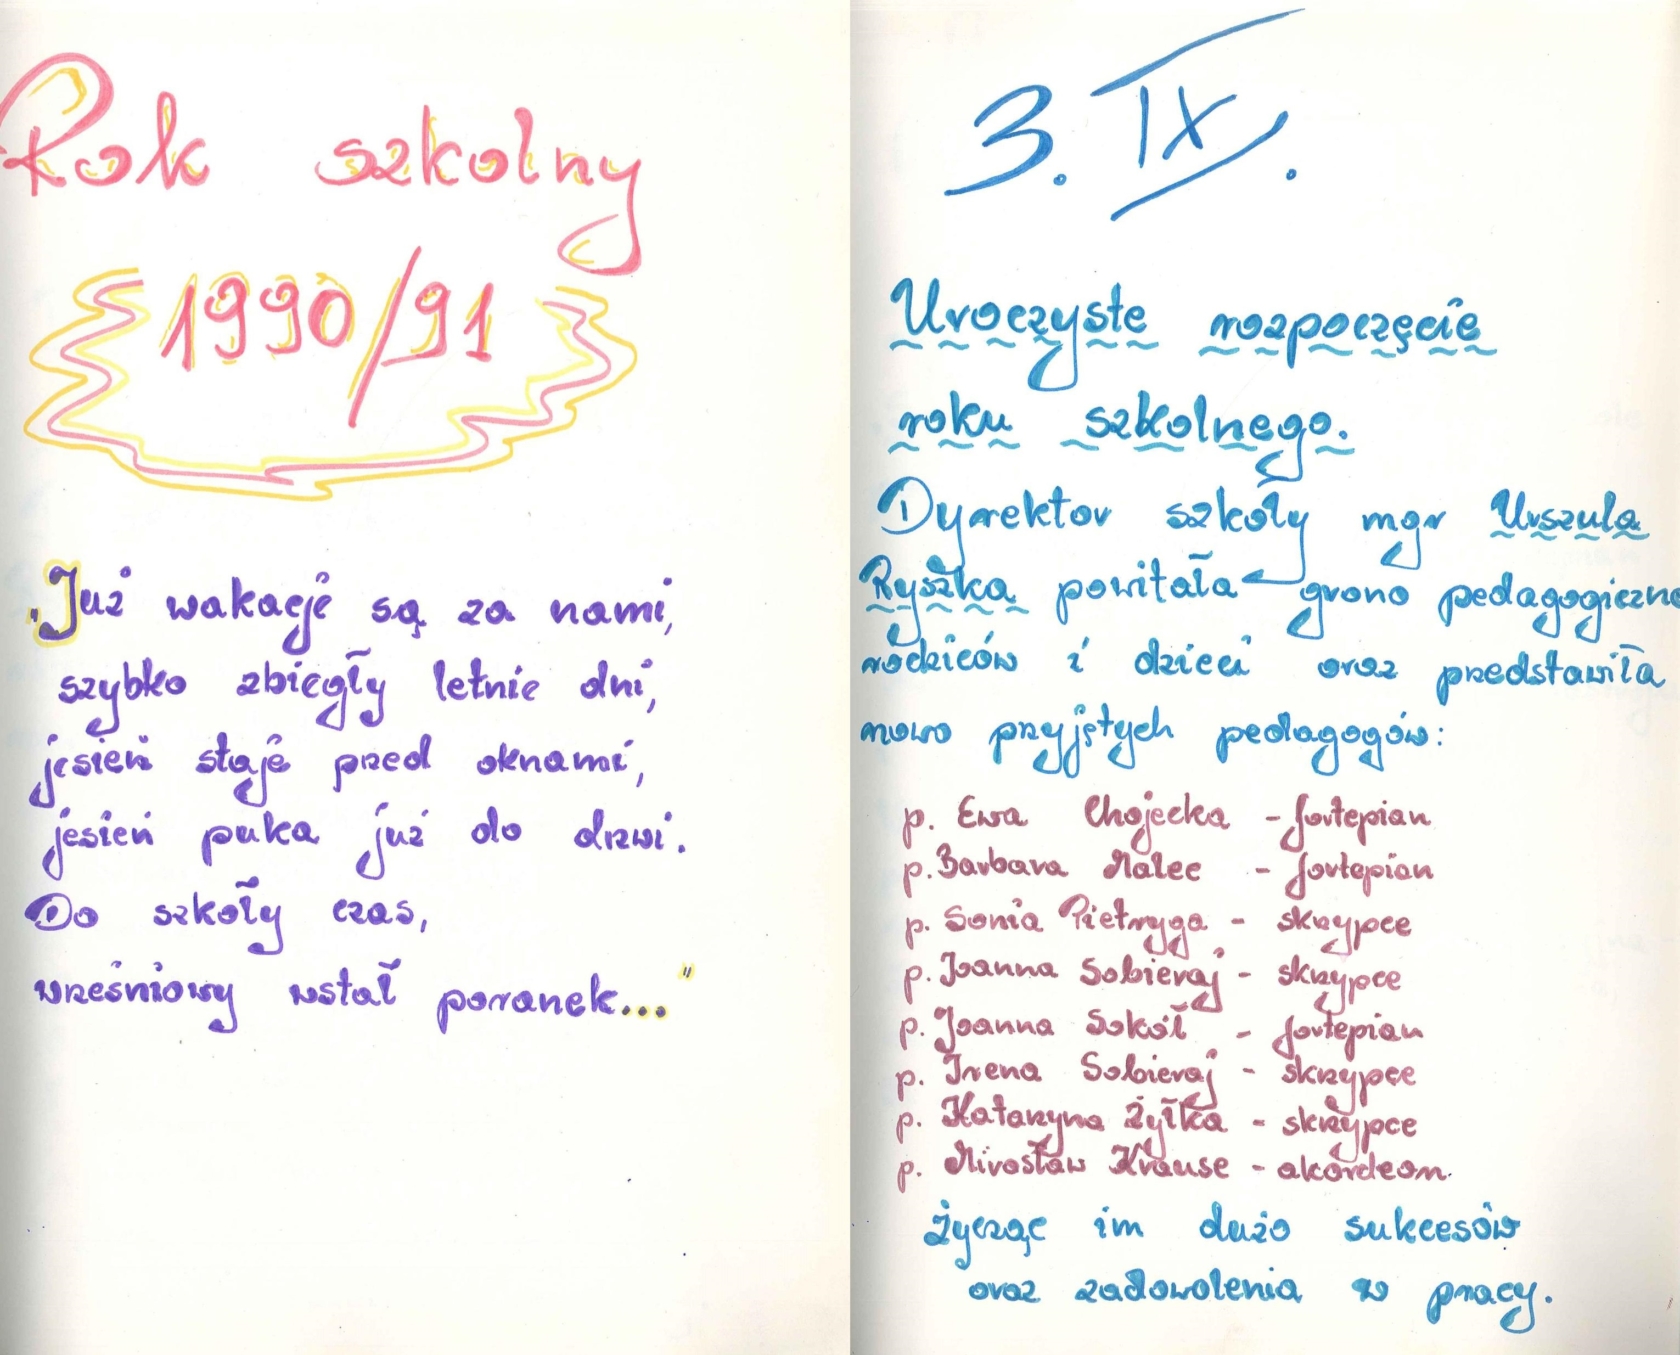 Rok szkolny
1990/91
"Już wakacje są za nami,
szybko zbiegły letnie dni,
jesień staje przed oknami,
jesień puka już do drzwi.
Do szkoły czas,
wrześniowy wstał poranek..."
3. IX.
Uroczyste rozpoczęcie
roku szkolnego.
Dyrektor szkoły mgr Urszula
Ryszka powitała grono pedagogiczne
rodziców i dzieci oraz przedstawiła
nowo przyjętych pedagogów:
p. Ewa Chojecka - fortepian
p. Barbara Malec - fortepian
p. Sonia Pietryga - skrzypce
p. Joanna Sobieraj - skrzypce
p. Joanna Sokół - fortepian
p. Irena Sobieraj - skrzypce
p. Katarzyna Żyłka - skrzypce
p. Mirosław Krause - akordeon.
życząc im dużo sukcesów
oraz zadowolenia w pracy.